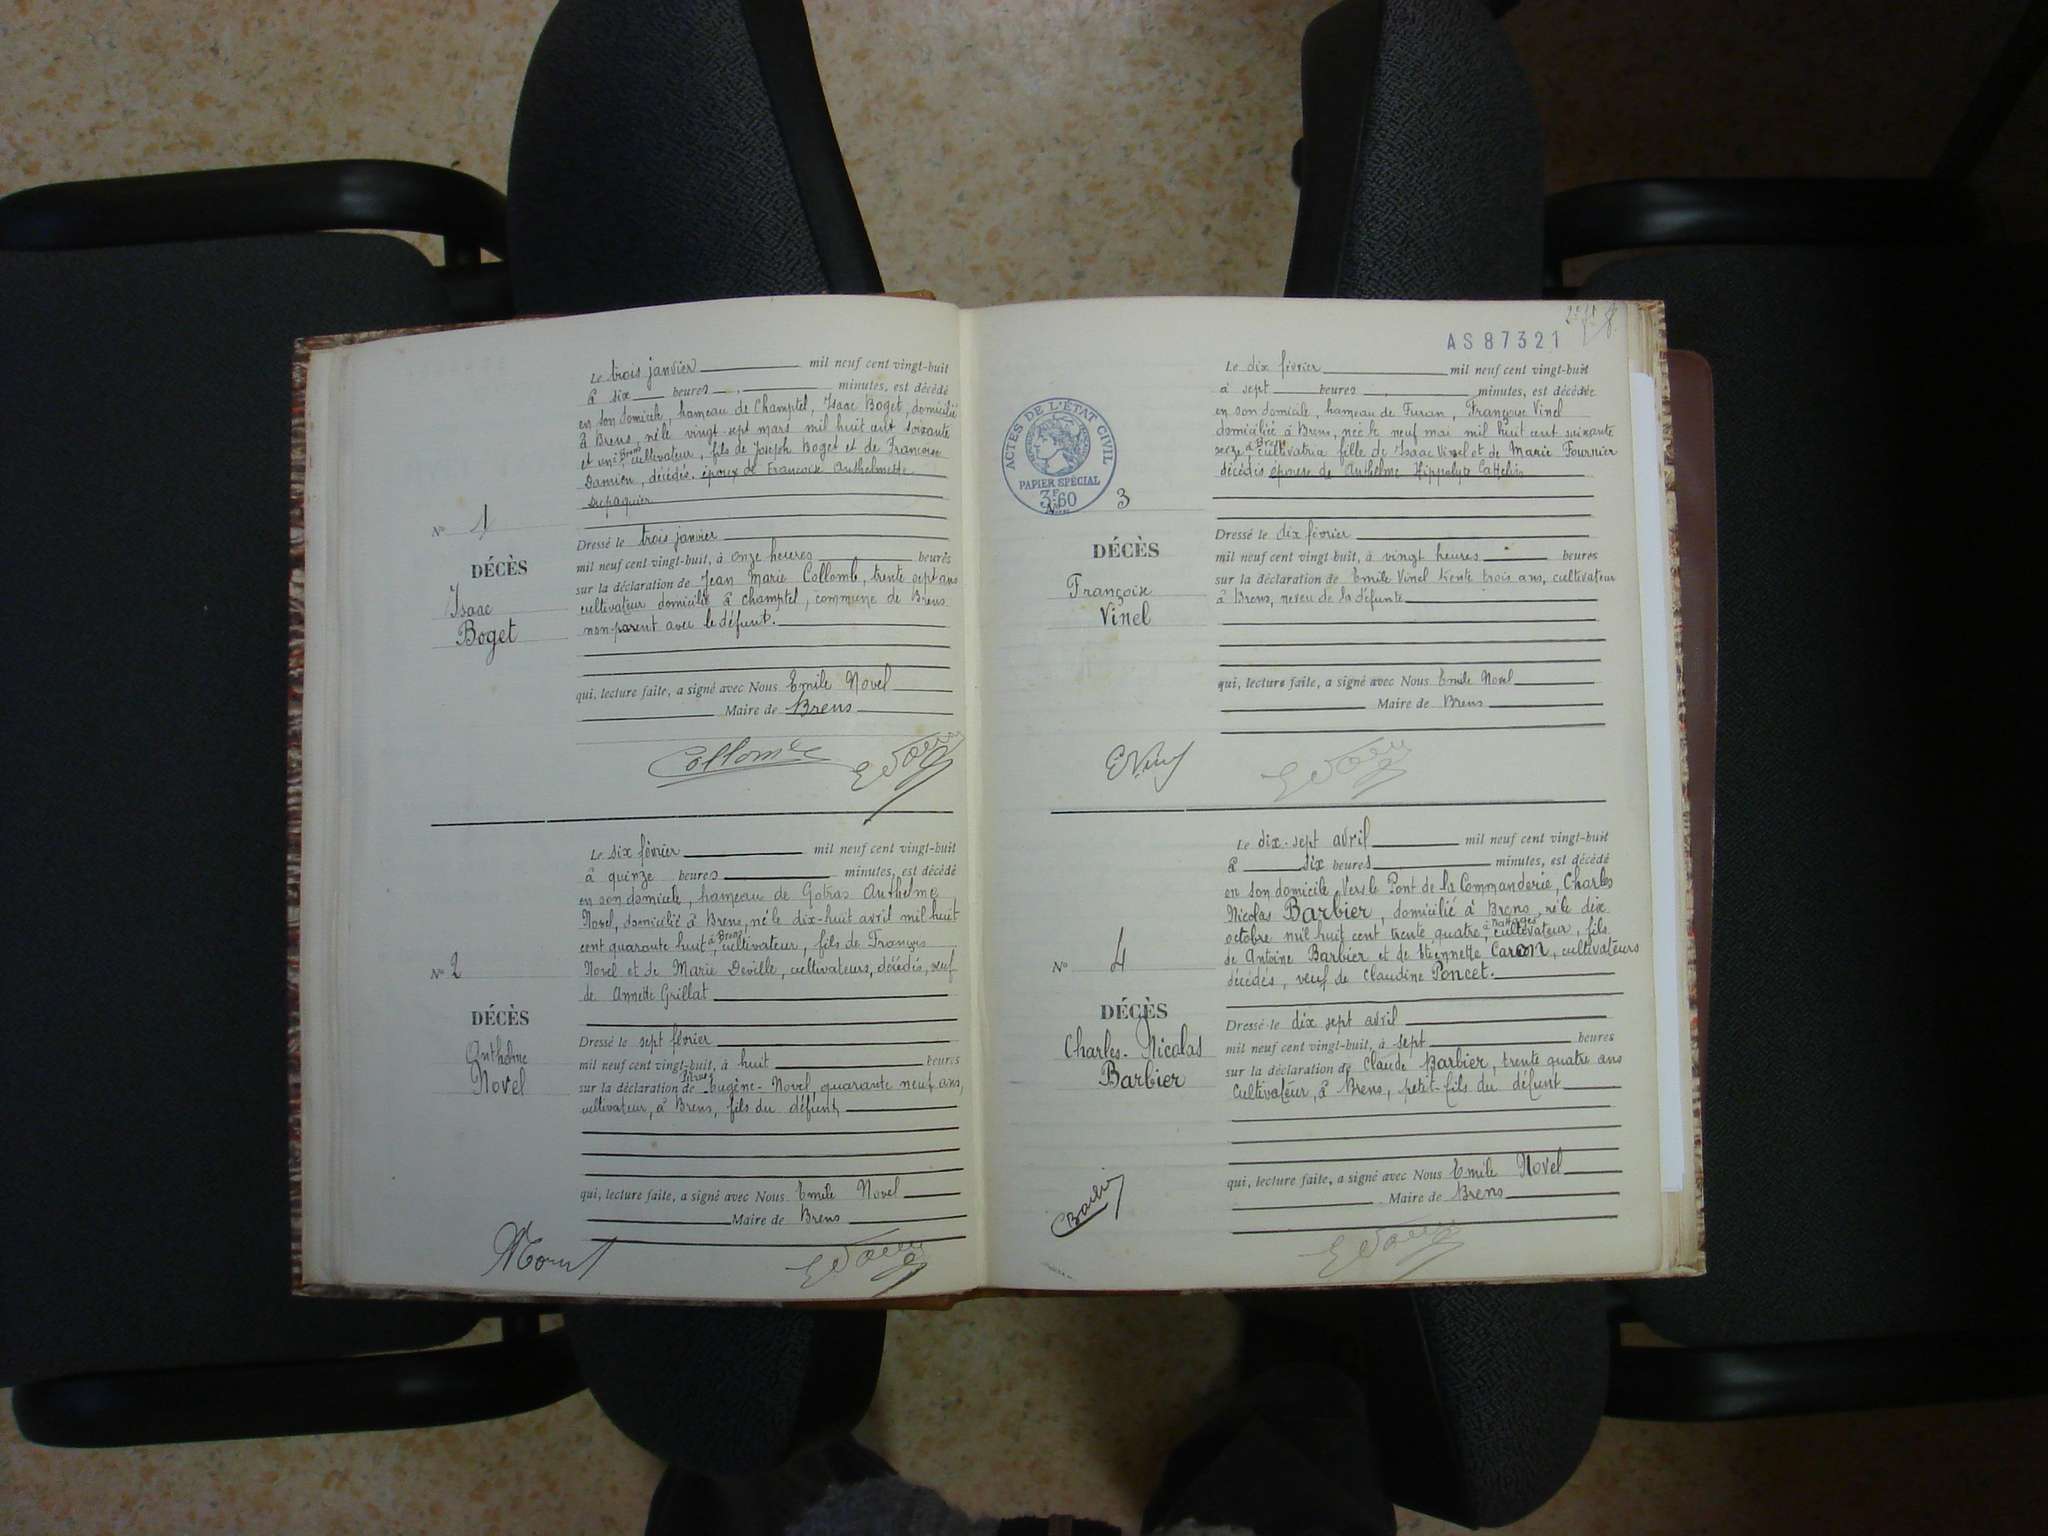 Le trois janvier mil neuf cent vingt-huit
à six heures, minutes, est décédé
en son domicile, hameau de Champtel, Isaac Boget, domicilié
à Brens, né le vingt-sept mars mil huit cent soixante
et un à Brens, cultivateur, fils de Joseph Boget et de Françoise
Damien, décédés. époux de Françoise Anthelmette
Dupaquier
N° 1
DÉCÈS
Isaac
Boget
Dressé le trois janvier
mil neuf cent vingt-huit, à onze heures heures
sur la déclaration de Jean Marie Collomb, trente sept ans
cultivateur domicilié à Champtel, commune de Brens
non-parent avec le défunt.
qui, lecture faite, a signé avec Nous Emile Novel
Maire de Brens
Collomb
Le six février mil neuf cent vingt-huit
à quinze heures minutes, est décédé
en son domicile, hameau de Gotras Anthelme
Novel, domicilié à Brens, né le dix-huit avril mil huit
cent quarante huit à Brens, cultivateur, fils de François
Novel et de Marie Deville, cultivateurs, décédés, veuf
de Annette Grillat
N° 2
DÉCÈS
Anthelme
Novel
Dressé le sept février
mil neuf cent vingt-huit, à huit heures
sur la déclaration de Eugène Novel, quarante neuf ans,
cultivateur, à Brens, fils du défunt,
qui, lecture faite, a signé avec Nous Emile Novel
Maire de Brens
AS87321
ACTES DE L'ÉTAT CIVIL
PAPIER SPÉCIAL
3F60
Le dix février mil neuf cent vingt-huit
à sept heures minutes, est décédée
en son domicile, hameau de Furan, Françoise Vinel
domiciliée à Brens, née le neuf mai mil huit cent soixante
seize à Brens cultivatrice fille de Isaac Vinel et de Marie Fournier
décédés épouse de Anthelme Hippolyte Cattelin
N° 3
DÉCÈS
Françoise
Vinel
Dressé le dix février
mil neuf cent vingt-huit, à vingt heures heures
sur la déclaration de Emile Vinel trente trois ans, cultivateur
à Brens, neveu de la défunte
qui, lecture faite, a signé avec Nous Emile Novel
Maire de Brens
E Vinel
Le dix-sept avril mil neuf cent vingt-huit
à six heures minutes, est décédé
en son domicile Vers le Pont de la Commanderie, Charles
Nicolas Barbier, domicilié à Brens, né le dix
octobre mil huit cent trente quatre à Nattages cultivateur, fils
de Antoine Barbier et de Etiennette Caron, cultivateurs
décédés, veuf de Claudine Poncet.
N° 4
DÉCÈS
Charles-Nicolas
Barbier
Dressé le dix sept avril
mil neuf cent vingt-huit, à sept heures
sur la déclaration de Claude Barbier, trente quatre ans
Cultivateur, à Brens, petit-fils du défunt
qui, lecture faite, a signé avec Nous Emile Novel
Maire de Brens
CBarbier